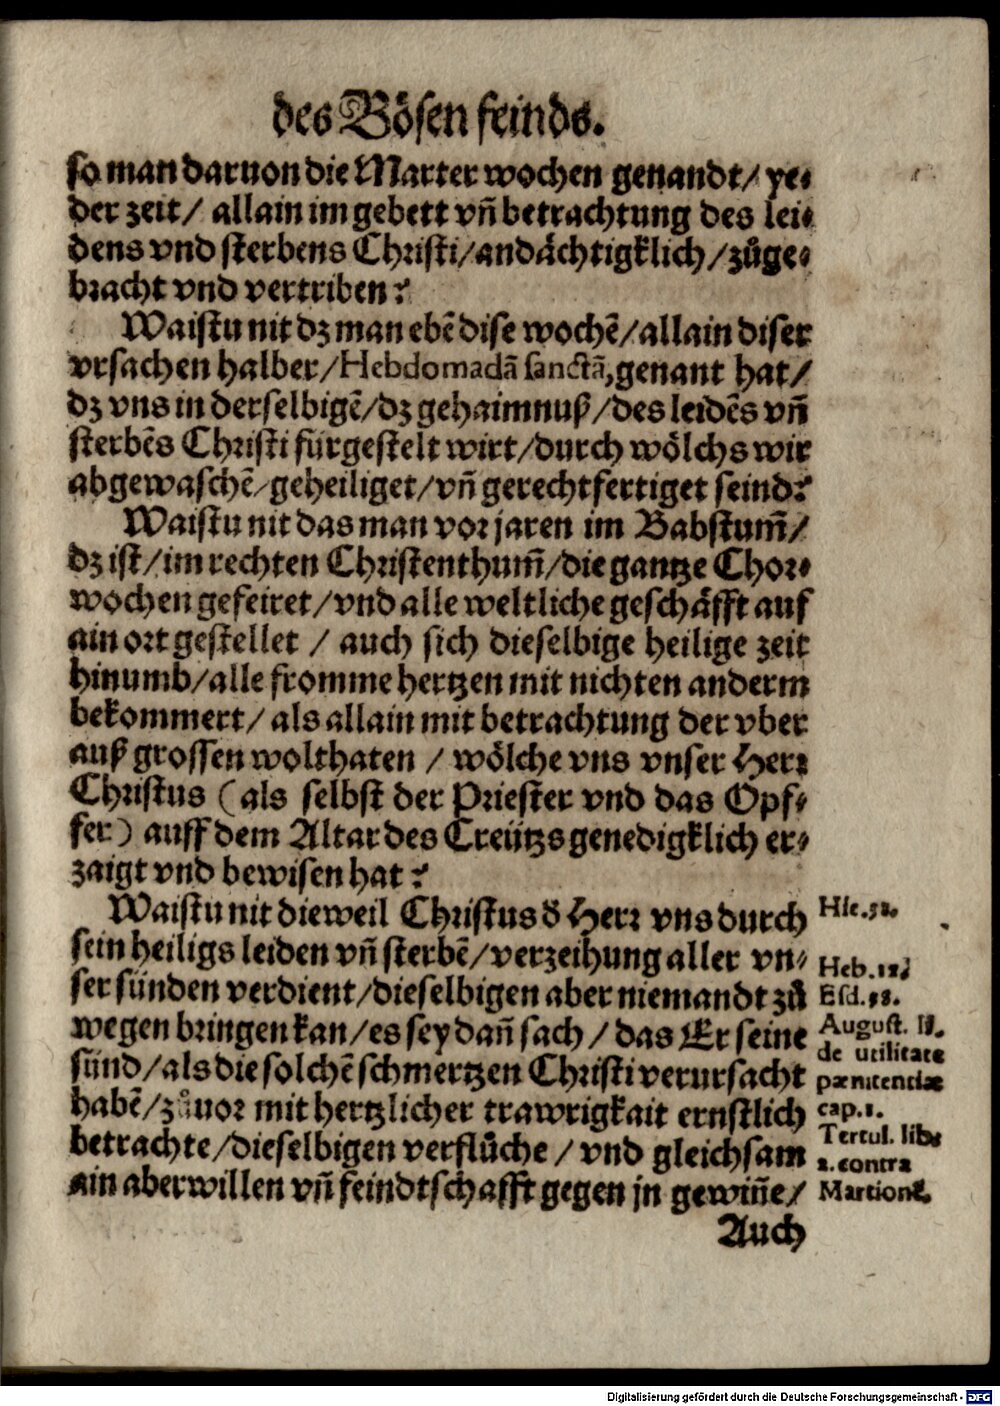 des Bösen feinds.
so man daruon die Marter wochen genandt/ ye⸗
der zeit/ allain im gebett vñ betrachtung des lei⸗
dens vnd sterbens Christi/andächtigklich/zůge⸗
bracht vnd vertriben?
Waistu nit dz man ebẽ dise wochẽ/allain diser
vrsachen halber/Hebdomadã sanctã,genant hat/
dz vns in derselbigẽ/dz gehaimnuß/des leidẽs vñ
sterbẽs Christi fürgestelt wirt/durch wölchs wir
abgewaschẽ/geheiliget/vñ gerechtfertiget seind?
Waistu nit das man vor jaren im Babstum̃/
dz ist/im rechten Christenthum̃/die gantze Chor⸗
wochen gefeiret/vnd alle weltliche geschäfft auf
ain ort gestellet / auch sich dieselbige heilige zeit
hinumb/alle fromme hertzen mit nichten anderm
bekommert/ als allain mit betrachtung der vber
auß grossen wolthaten / wölche vns vnser Herr
Christus (als selbst der Priester vnd das Opf⸗
fer) auff dem Altar des Creützs genedigklich er⸗
zaigt vnd bewisen hat?
Waistu nit dieweil Christus d̕ Herr vns durch
sein heiligs leiden vñ sterbẽ/verzeihung aller vn⸗
ser sünden verdient/dieselbigen aber niemandt zů
wegen bringen kan/es sey dañ sach / das Er seine
sünd/als die solchẽ schmertzen Christi verursacht
habẽ/zůuor mit hertzlicher trawrigkait ernstlich
betrachte/dieselbigen verflůche / vnd gleichsam
ain aberwillen vñ feindtschafft gegen jn gewiñe/
Auch
Hie.
Heb.12.
Esd.
August. li.
de utilitate
pænitentiæ
cap.1.
Tertul. lib.
2.contra
Martionẽ.
Digitalisierung gefördert durch die Deutsche Forschungsgemeinschaft - DFG